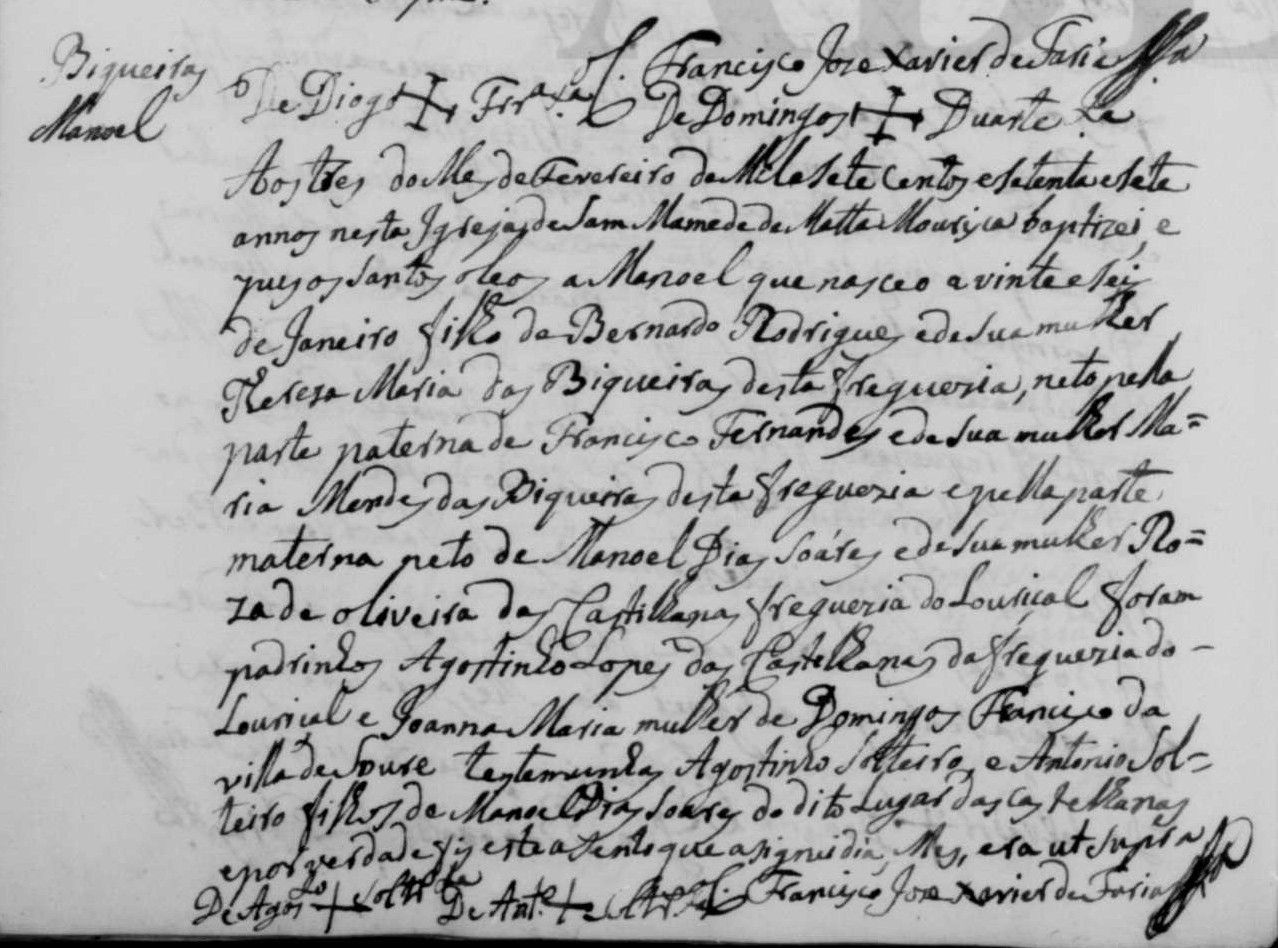 Biqueiras
Manoel
O C. Francisco Joze Xavier de Faria
De Diogo + Frra tta De Domingos + Duarte ta
Aos tres do Mes de Fevereiro de Mil e sete centos e setenta e sete
annos nesta Igreja de Sam Mamede da Matta Mourisca baptizei, e
pus os santos oleos a Manoel que nasceo a vinte e seis
de Janeiro filho de Bernardo Rodrigues e de sua mulher
Thereza Maria das Biqueiras desta freguezia, neto pella
parte paterna de Francisco Fernandes e de sua mulher Ma=
ria Mendes das Biqueiras desta freguezia e pella parte
materna neto de Manoel Dias Soáres e de sua mulher Ro=
za de oliveira das Castilhanas freguezia do Louriçal foram
padrinhos Agostinho Lopes das Castelhanas da freguezia do -
Louriçal e Joanna Maria mulher de Domingos Francisco da
villa de Soure testemunhas Agostinho Solteiro, e Antonio Sol=
teiro filhos de Manoel Dias Soares do dito Lugar das Castelhanas
e por verdade fis este asento que asignei dia, Mes, era ut supra
De Agos.to + soltr.o ta De Ant.o + soltr.o C. Francisco Joze Xavier de Faria